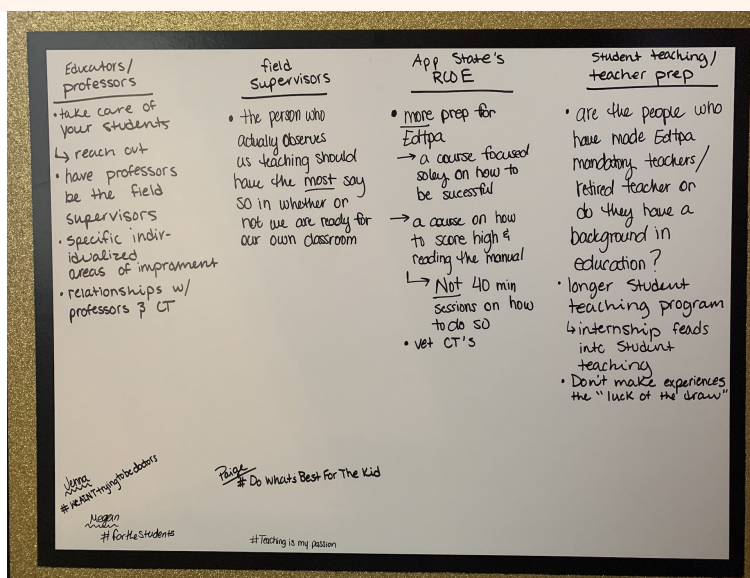 Educators/
professors
• take care of
your students
↳ reach out
• have professors
be the field
supervisors
• specific indiv-
idualized
areas of improment
• relationships w/
professors & CT
field
Supervisors
• the person who
actually observes
us teaching should
have the most say
so in whether or
not we are ready for
our own classroom
App State's
RCOE
• more prep for
Edtpa
→ a course focused
soley on how to
be sucessful
→ a course on how
to score high &
reading the manual
↳ Not 40 min
sessions on how
to do so
• vet CT's
Student teaching/
teacher prep
• are the people who
have made Edtpa
mandatory teachers/
retired teacher or
do they have a
background in
education?
• longer Student
teaching program
↳ internship feads
into Student
teaching
• Don't make experiences
the "luck of the draw"
Jenna
#WeAINTtryingtobedoctors
Megan
#fortheStudents
Paige
# Do Whats Best For The Kid
#Teaching is my passion